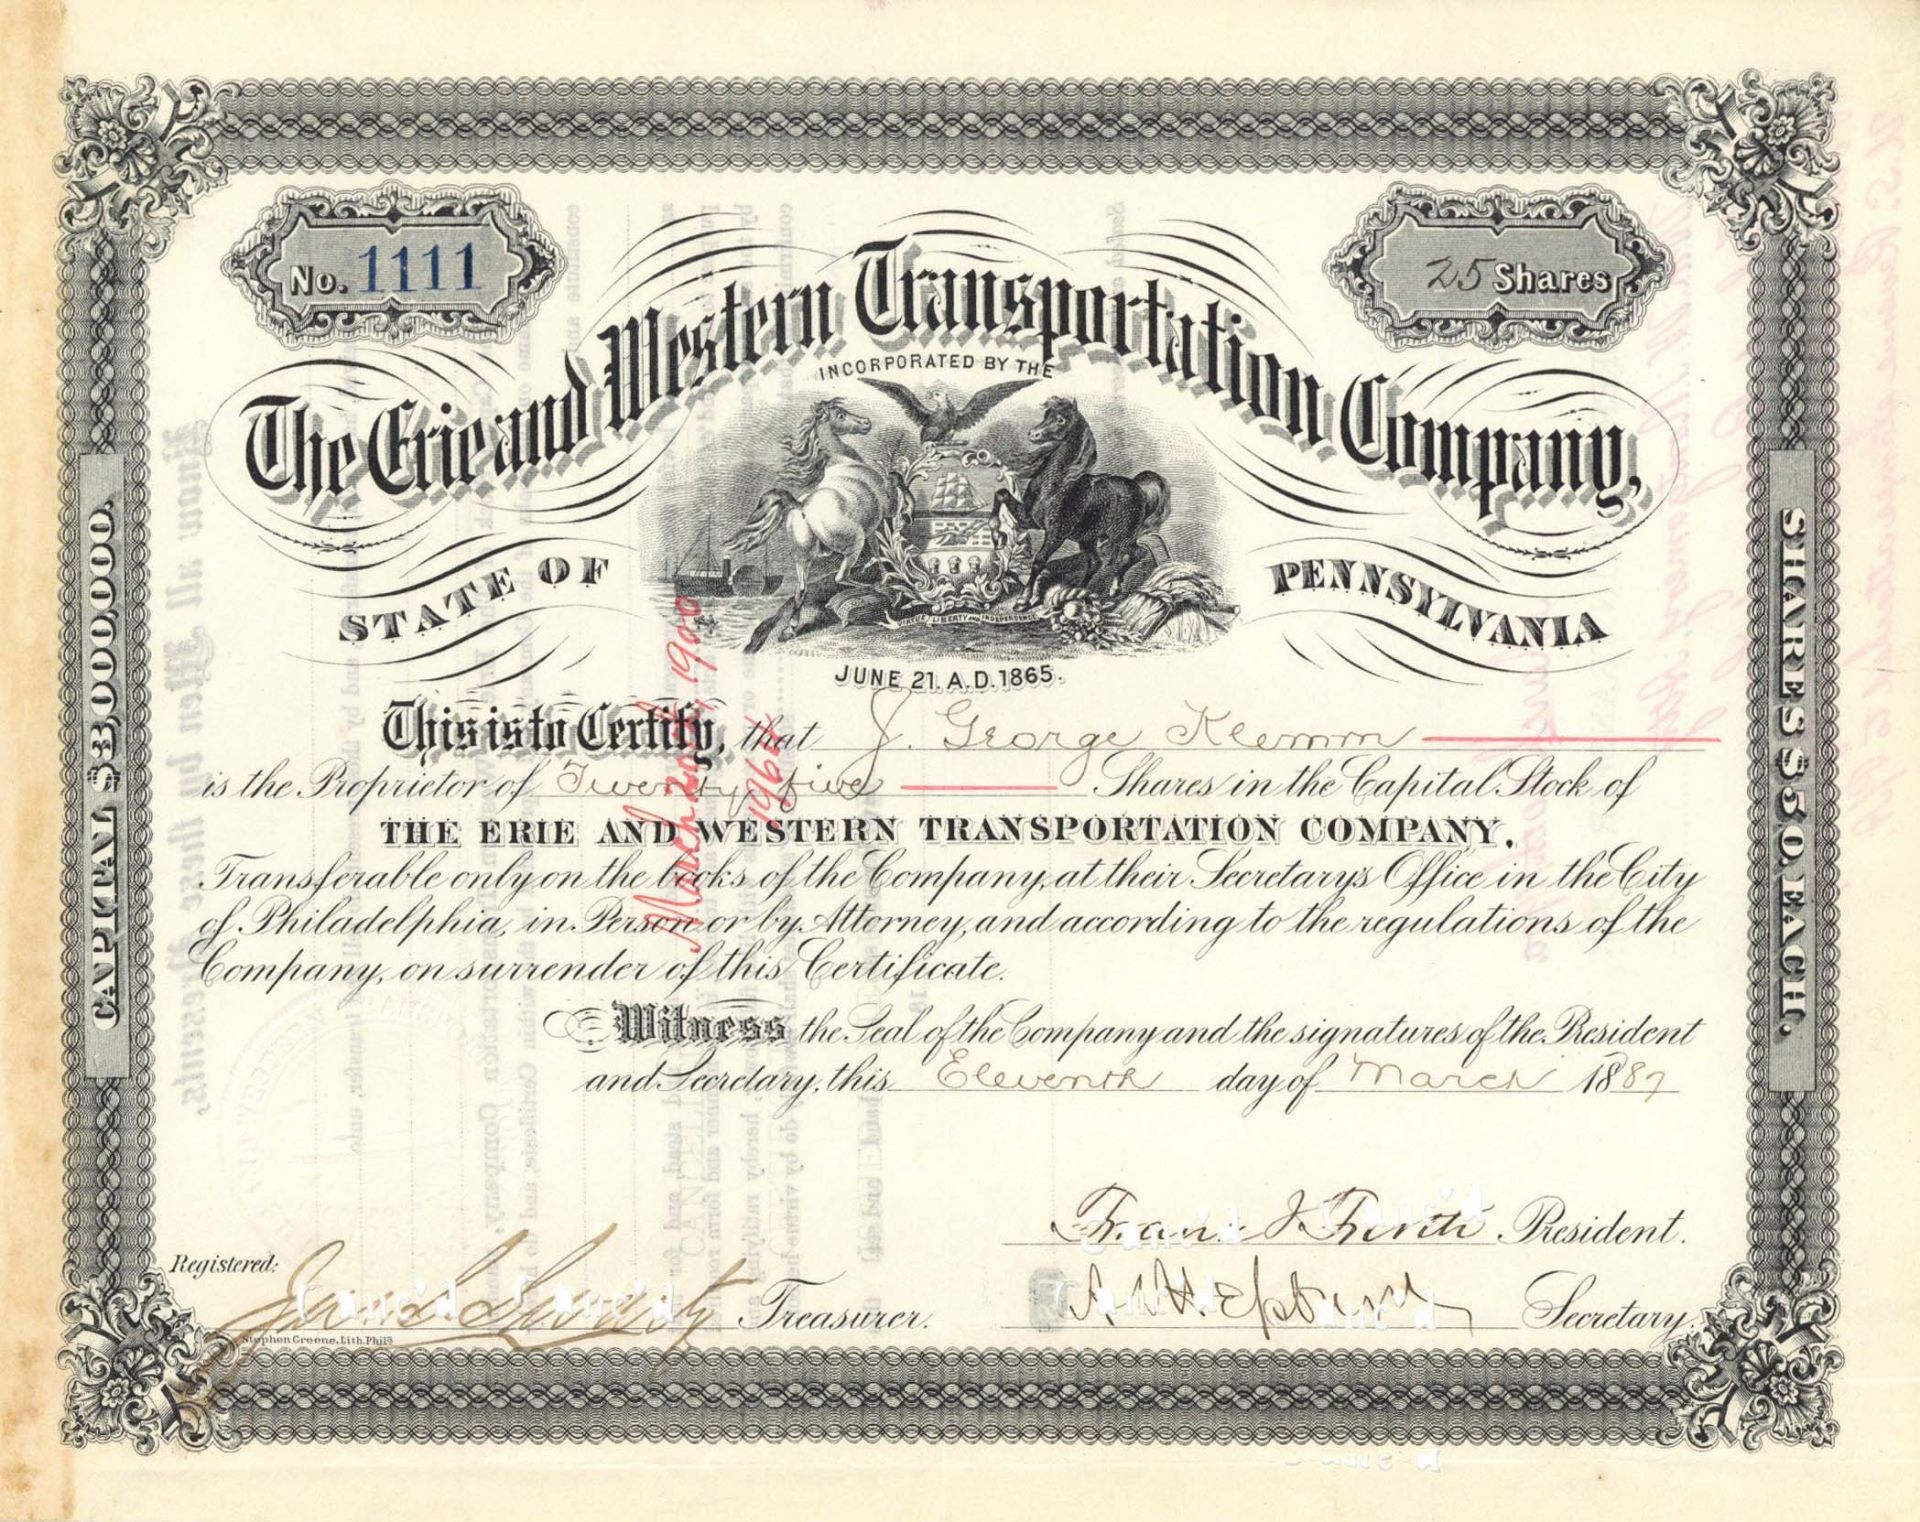 No. 1111
25 Shares
The Erie and Western Transportation Company,
INCORPORATED BY THE
STATE OF PENNSYLVANIA
VIRTUE, LIBERTY AND INDEPENDENCE
JUNE 21. A.D. 1865.
This is to Certify, that J. George Klemm
is the Proprietor of Twenty five Shares in the Capital Stock of
THE ERIE AND WESTERN TRANSPORTATION COMPANY,
Transferable only on the books of the Company, at their Secretarys Office in the City
of Philadelphia, in Person or by Attorney, and according to the regulations of the
Company, on surrender of this Certificate.
Witness the Seal of the Company and the signatures of the President
and Secretary, this Eleventh day of March 1887
President.
Registered:
Treasurer.
Secretary.
Stephen Greene, Lith. Phila
CAPITAL $3,000,000.
SHARES $50. EACH.
March 20 1900
Canc'd
Canc'd
Canc'd
Canc'd